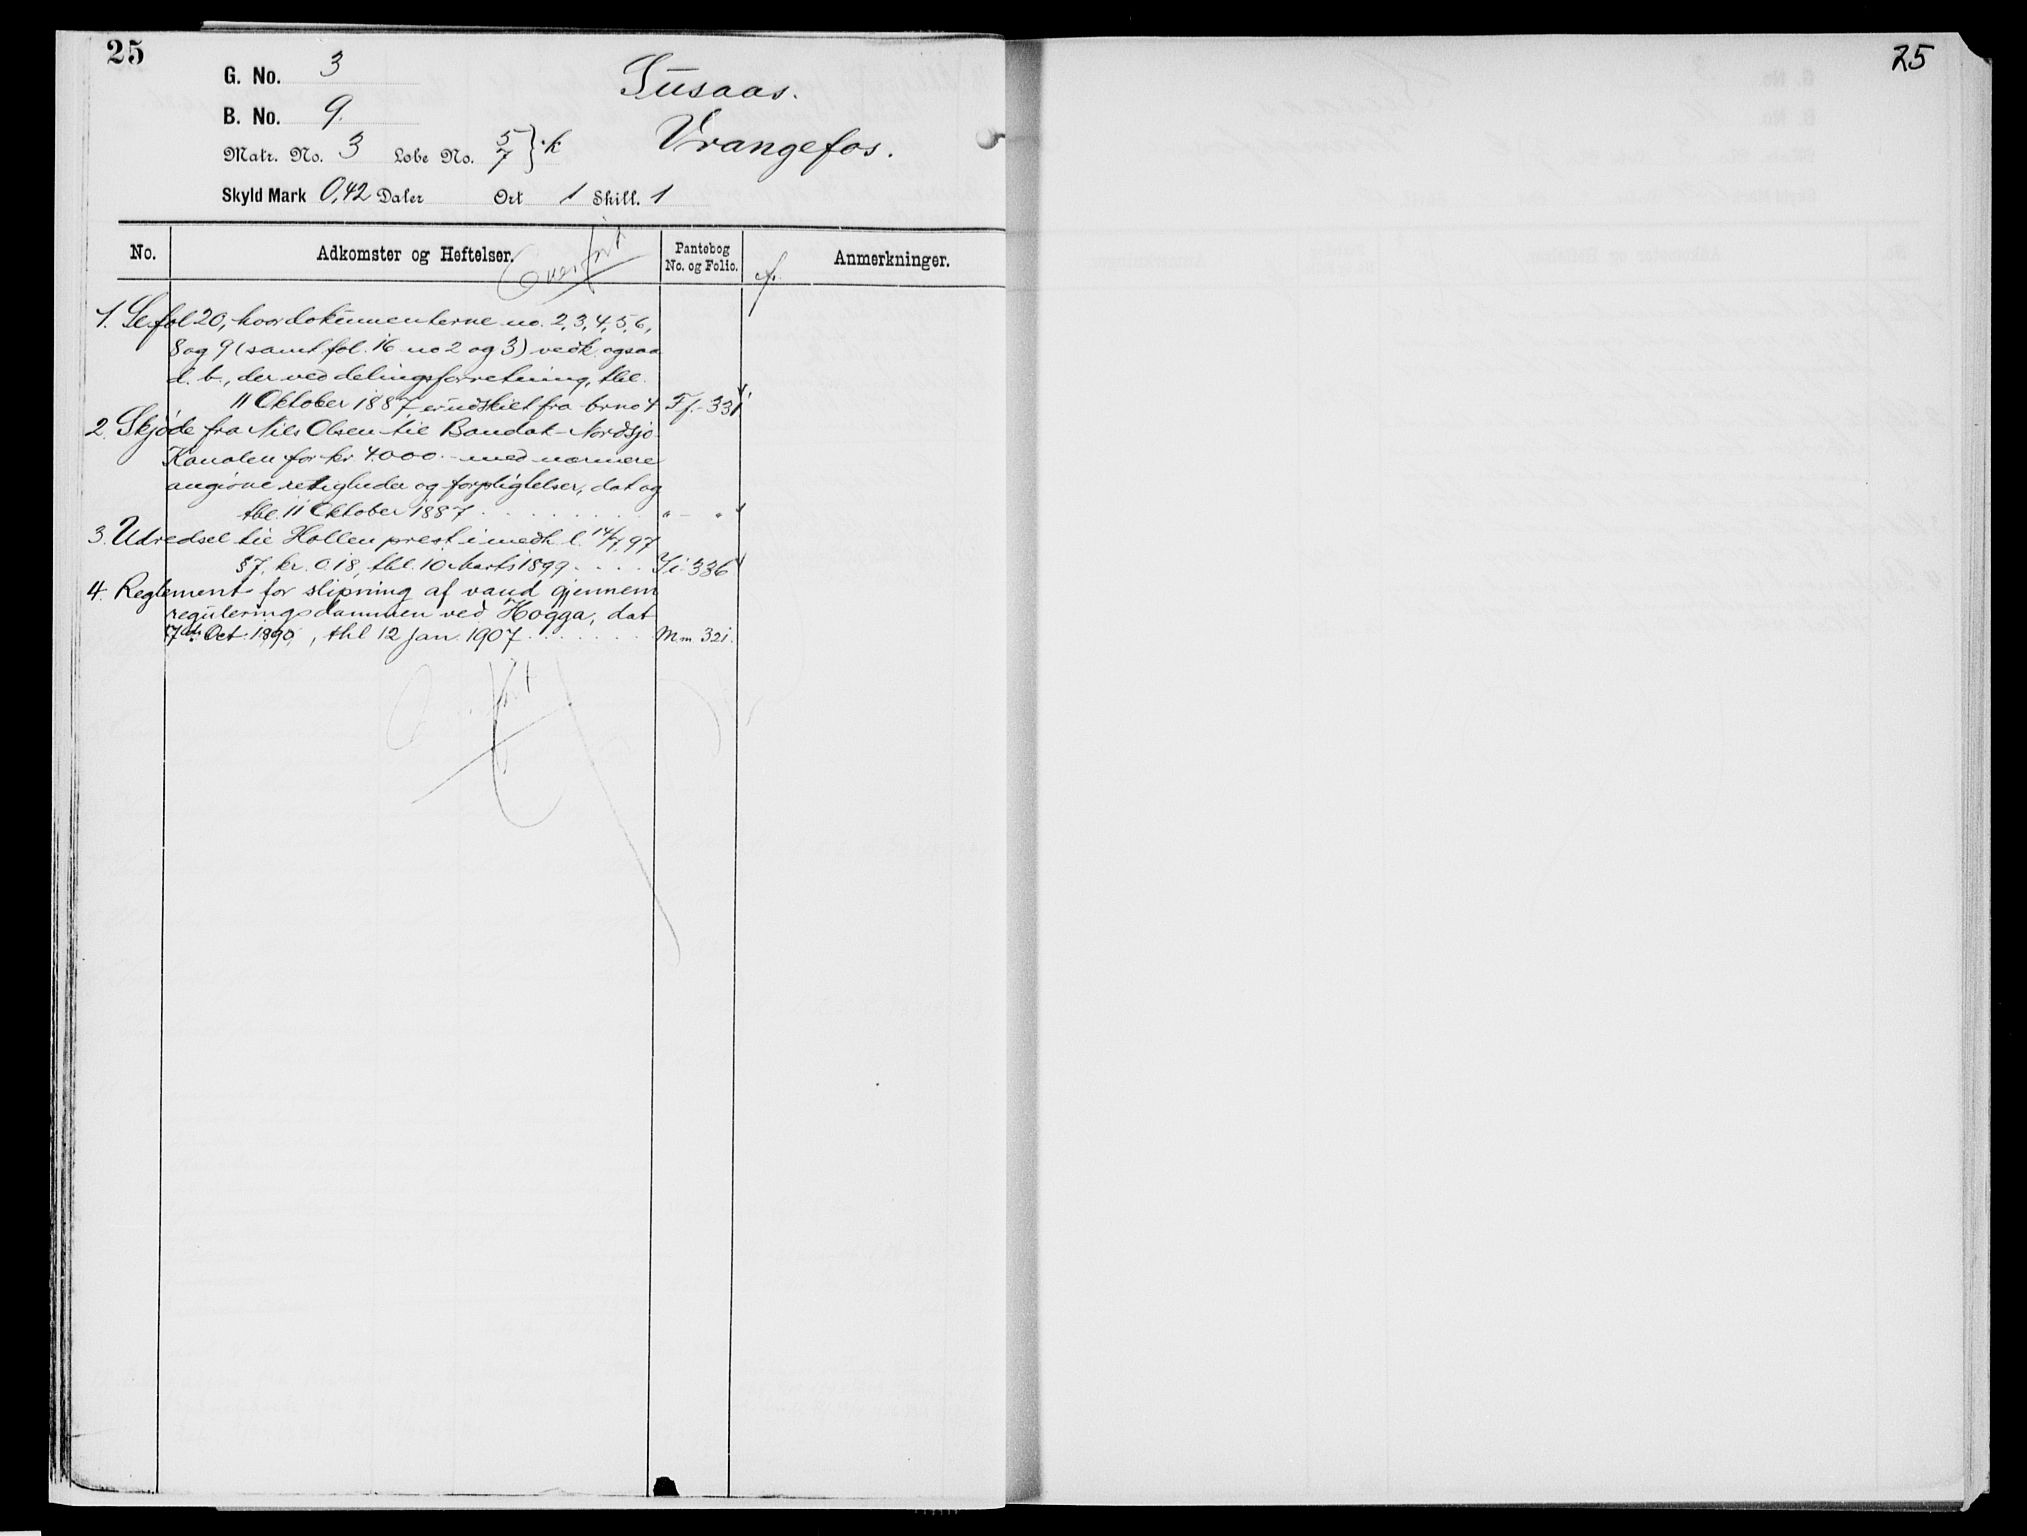 25
25
G. No. 3
Susaas.
B. No. 9.
Vrangefos.
Matr. No. 3 Løbe No. 5/7 } k
Skyld Mark 0,42 Daler Ort 1 Skill. 1
No. Adkomster og Heftelser. Pantebog No. og Folio. Anmerkninger.
Overført
1. Se fol 20, hvor dokumenterne no. 2, 3, 4, 5, 6,
8 og 9 (samt fol. 16 no 2 og 3) vedk. ogsaa
d. b., der ved delingsforretning, thl.
11 Oktober 1887 er udskilt fra brno 4 Ff. 331
2. Skjøde fra Nils Olsen til Bandak-Nordsjø
Kanalen for kr 4000.- med nærmere
angivne retigheder og forpligtelser, dat og
thl. 11 Oktober 1887 . . . . . . . . . " - "
3. Udredsel til Hollen prest i medh. l. 14/7 97
§ 7, kr. 0.18, thl. 10 Marts 1899 . . . . Ii 336
4. Reglement for slipning af vand gjennem
reguleringsdammen ved Hogga, dat
7de Oct. 1890, thl 12 Jan. 1907 . . . . . . . Mm 321.